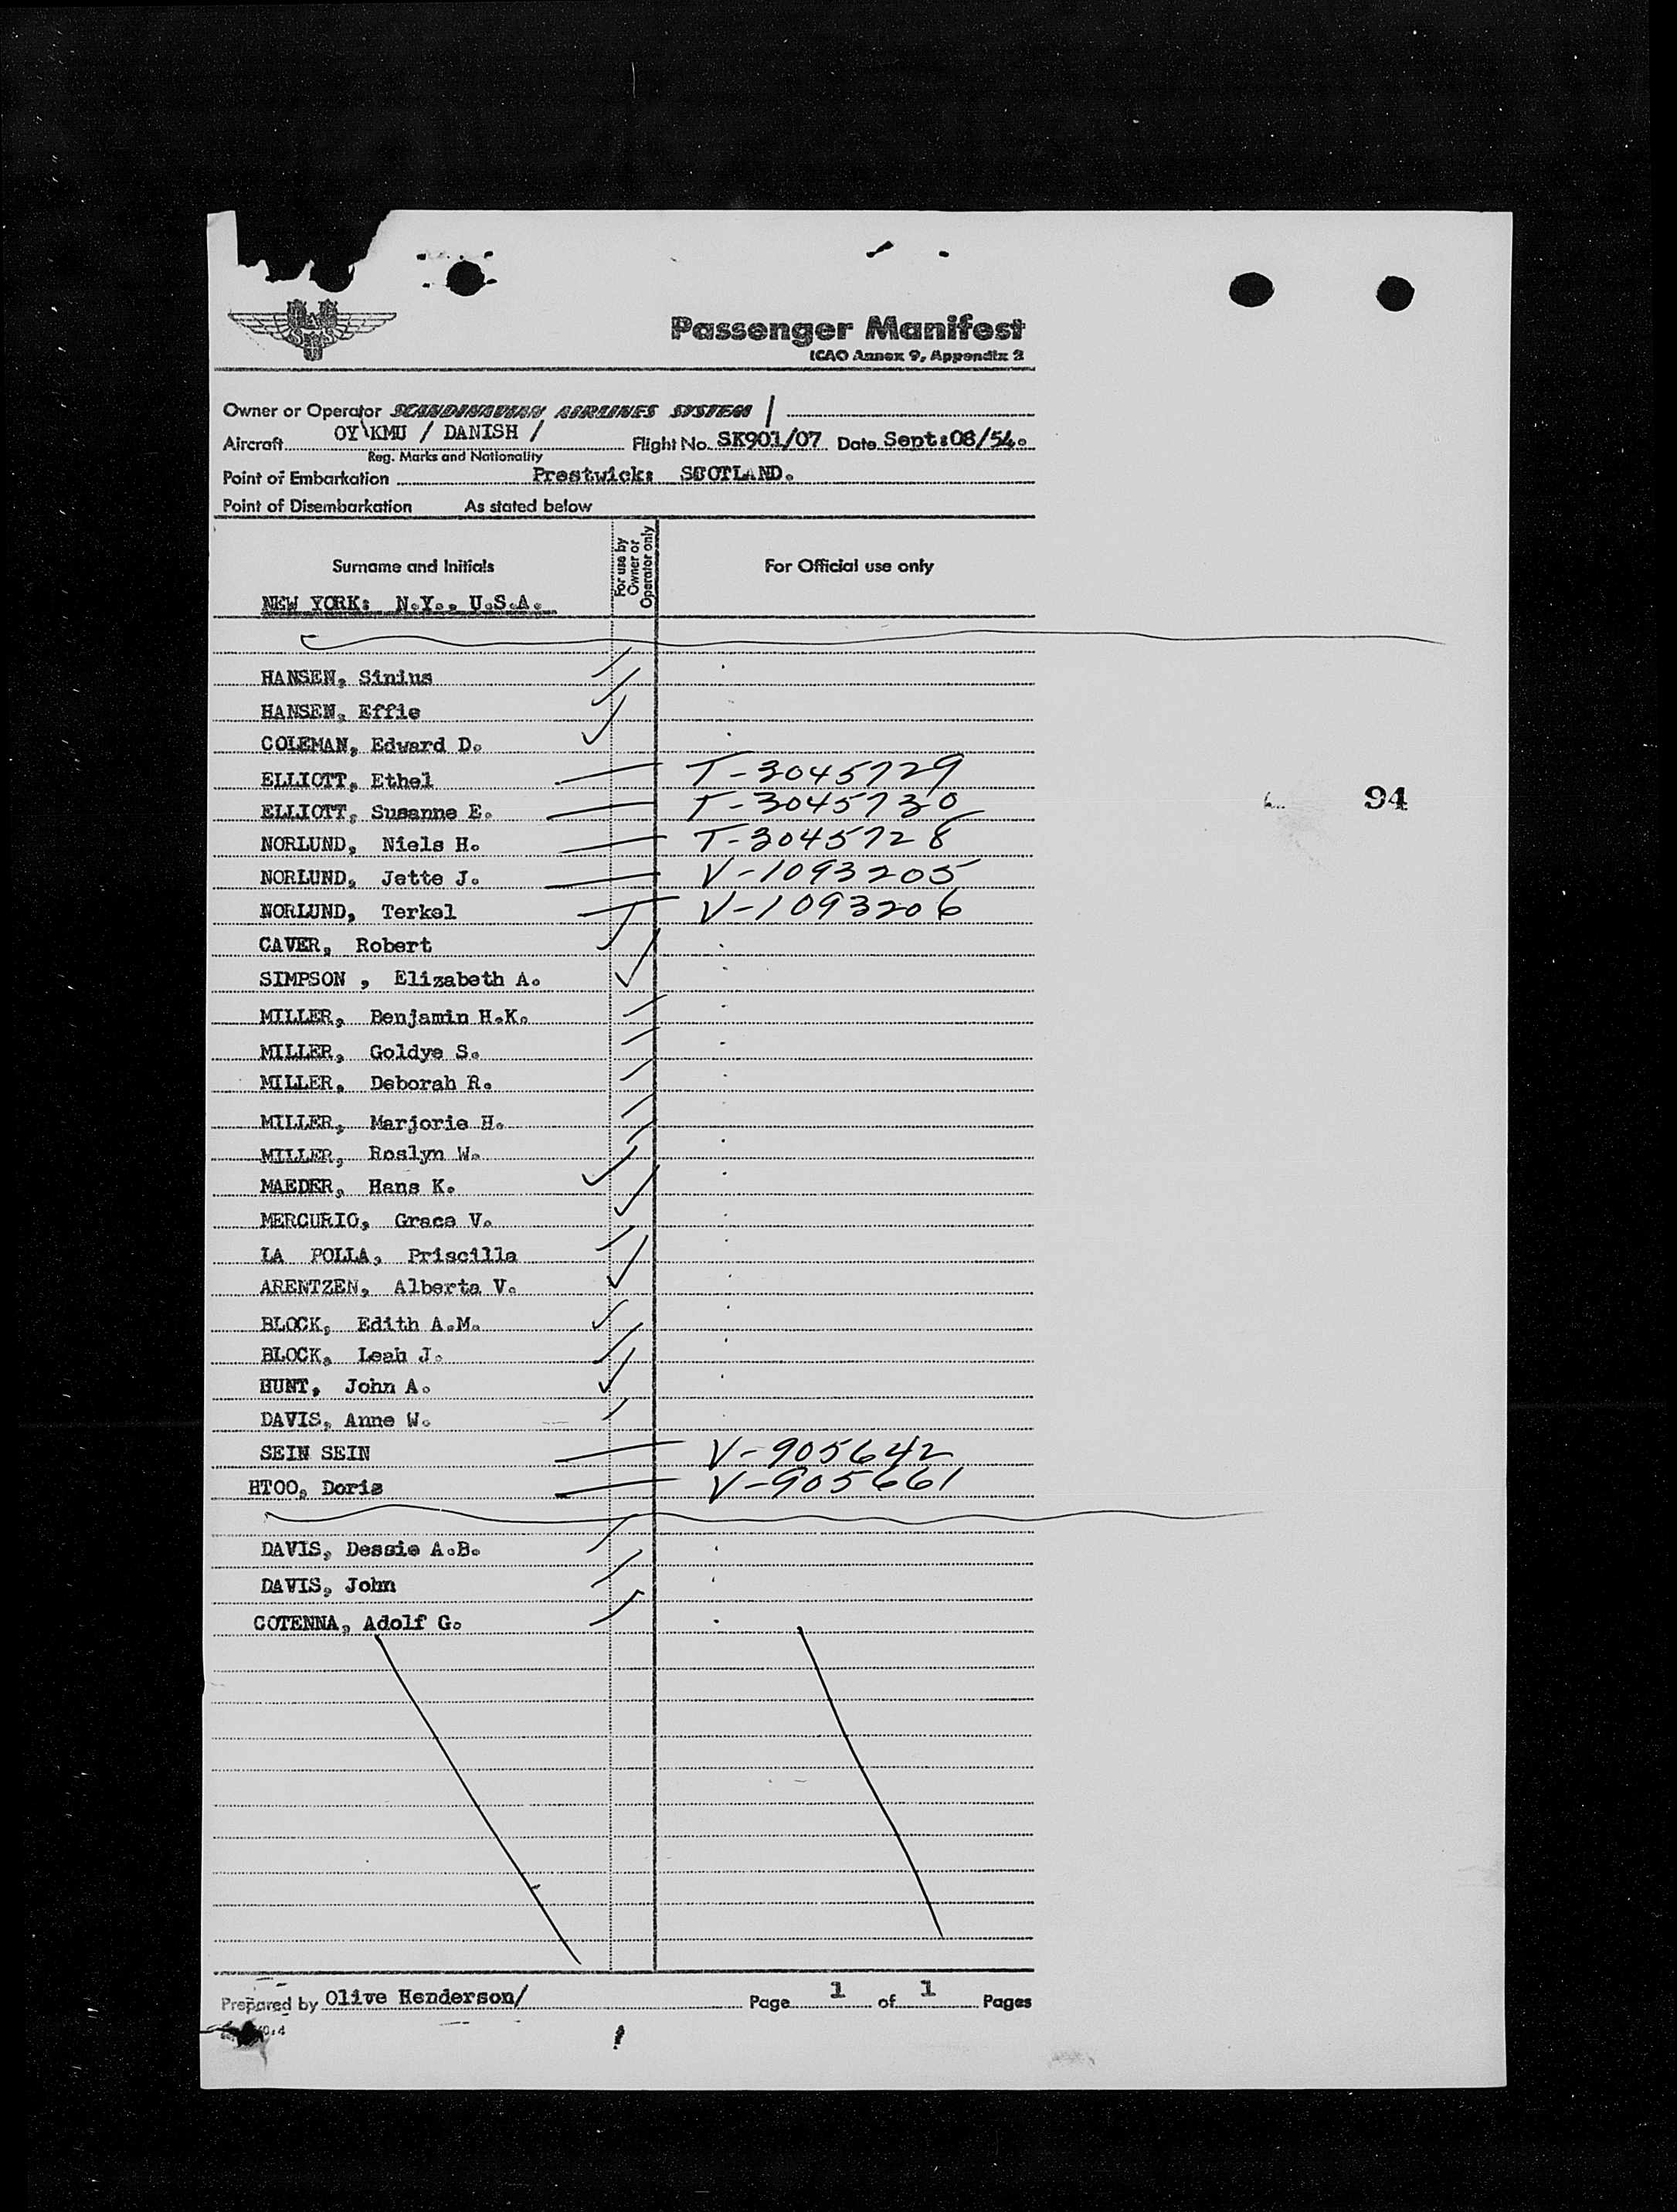 SAS
Passenger Manifest
ICAO Annex 9, Appendix 2
Owner or Operator SCANDINAVIAN AIRLINES SYSTEM /
Aircraft OY\KMU / DANISH / Flight No. SK901/07 Date Sept:08/54.
Reg. Marks and Nationality
Point of Embarkation Prestwick: SCOTLAND.
Point of Disembarkation As stated below
Surname and Initials For use by Owner or Operator only For Official use only
NEW YORK: N.Y., U.S.A.
HANSEN, Sinius
HANSEN, Effie
COLEMAN, Edward D.
ELLIOTT, Ethel T-3045729
ELLIOTT, Susanne E. T-3045730
94
NORLUND, Niels H. T-3045728
NORLUND, Jette J. V-1093205
NORLUND, Terkel V-1093206
CAVER, Robert
SIMPSON , Elizabeth A.
MILLER, Benjamin H.K.
MILLER, Goldye S.
MILLER, Deborah R.
MILLER, Marjorie H.
MILLER, Roslyn W.
MAEDER, Hans K.
MERCURIO, Grace V.
LA POLLA, Priscilla
ARENTZEN, Alberta V.
BLOCK, Edith A.M.
BLOCK, Leah J.
HUNT, John A.
DAVIS, Anne W.
SEIN SEIN V-905642
HTOO, Doris V-905661
DAVIS, Dessie A.B.
DAVIS, John
COTENNA, Adolf G.
Prepared by Olive Henderson/ Page 1 of 1 Pages